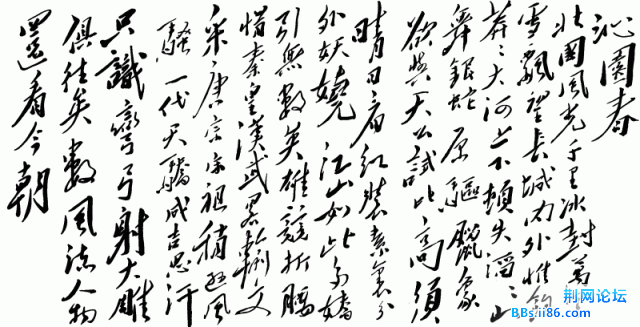 沁園春
北國風光千里冰封萬里
雪飄望長城内外惟餘
莽々大河上下頓失滔々山
舞銀蛇原驅臘象
欲與天公試比高須
晴日看紅裝素裹分
外妖嬈江山如此多嬌
引無數英雄競折腰
惜秦皇漢武略輸文
采唐宗宋祖稍遜風
騷一代天驕成吉思汗
只識彎弓射大雕
俱往矣數風流人物
還看今朝
荆网论坛
BBs.ii86.com